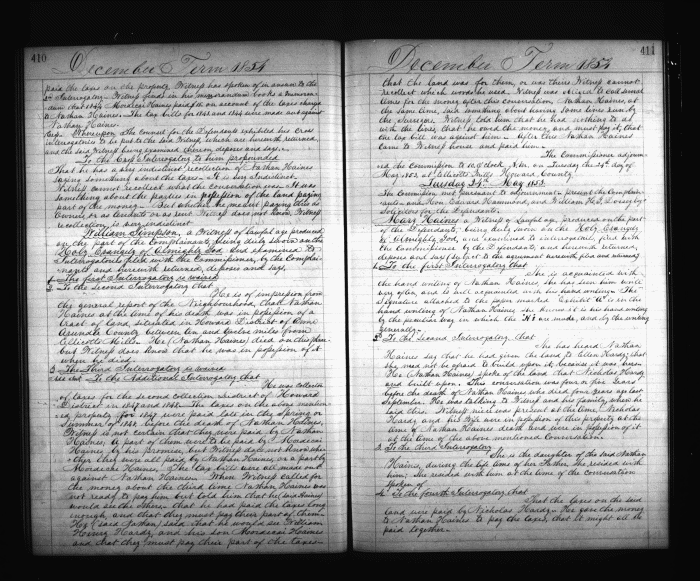 410
December Term 1854
paid the taxes on the property Witness has spoken of in answer to the
2nd Interrogatory. Witness found in his memorandum books a memoran
dum that 1848 Mordecai Haines paid $ on account of the taxes charged
to Nathan Haines. The tax bills for 1843 and 1844 were made out against
Nathan Haines
Whereupon the Counsel for the Defendants exhibited his Cross
interrogatories to be put to the said Witness, which are herewith returned,
and the said Witness being examined thereon, deposes and says.
To the Cross Interrogatory to him propounded
That he has a very indistinct recollection of Nathan Haines
saying something about the taxes. It is very indistinct
Witness cannot recollect what the conversation was. It was
something about the parties in possession of the land paying
part of the money. But whether he meant paying this as
Owners or as tenants or as rent Witness does not know, Witness
recollection is very indistinct
William Simpson, a Witness of lawful age produced
on the part of the Complainants, being duly sworn on the
Holy Evangely of Almighty God and examined to
Interrogatories filed with the Commissioner, by the Complai-
nants and herewith returned, deposes and says,
1. The first Interrogatory is waived
2. To the second Interrogatory that
He is of impression from
the general report of the Neighbourhood, that Nathan
Haines at the time of his death was in possession of a
tract of land, situated in Howard District of Anne
Arundel County between ten and twelve miles from
Ellicotts Mills. He (Nathan Haines) died on this place
but Witness does know that he was in possession of it
when he died.
3. The Third Interrogatory is waived
To the Additional Interrogatory that
He was Collector
of taxes for the second collection District of Howard
District in 1847 and 1848. The taxes on the above mention
ed property for 1847 were paid late in the Spring or
Summer of 1848, before the death of Nathan Haines,
Witness is not certain that they were paid by Nathan
Haines. A part of them were to be paid by Mordecai
Haines, by his promise, but Witness does not know whe
ther they were all paid by Nathan Haines, or a part by
Mordecai Haines. The tax bills were all made out
against Nathan Haines. When Witness called for
the money about the third time Nathan Haines was
not ready to pay him but told him that he (said Haines)
would see the others that he had paid the taxes long
enough, and that they must pay their part of them.
He (said Nathan) said that he would see William
Henry Hardy, and his son Mordecai Haines
and that they must pay their part of the taxes
411
December Term 1854
that the land was for them, or was theirs Witness cannot
recollect which words he used. Witness was obliged to call several
times for the money after this conversation. Nathan Haines, at
the same time, said something about having some lines run by
the Surveyor. Witness told him that he had nothing to do
with the lines, that he owed the money, and must pay it, that
the tax bill was against him. After this Nathan Haines
came to Witness house and paid him.
The Commissioner adjourn
ed the Commission to 10 O'clock A.M. on Tuesday the 24th day of
May 1853, at Ellicotts Mills Howard County
Tuesday 24th May 1853.
The Commission met pursuant to adjournment present the Complain
ants and Hon. Edward Hammond, and William H. G. Dorsey
Solicitors for the Defendants.
Mary Haines a Witness of lawful age, produced on the part
of the Defendants, being duly sworn on the Holy Evangely
of Almighty God, and examined to interrogatories, filed with
the Commissioner by the Defendants, and herewith returned,
deposes and says
1. To the first Interrogatory that
She is acquainted with
the hand writing of Nathan Haines, she has seen him write
very often and is well acquainted with his hand writing. The
Signature attached to the paper marked "Exhibit A" is in the
hand writing of Nathan Haines, she knows it is his hand writing
by the peculiar way in which the H's are made, and by the writing
generally.
2. To the Second Interrogatory that
She has heard Nathan
Haines say that he had given the land to Ellen Hardy, that
she need not be afraid to build upon it, because it was hers
He (Nathan Haines) spoke of the land that Nicholas Hardy
and built upon. This conversation was four or five Years
before the death of Nathan Haines, who died four years ago last
September. He was talking to Witness and his family, when he
said this. Witness niece was present at the time. Nicholas
Hardy and his Wife were in possession of this property at the
time of Nathan Haines death and were in possession of it
at the time of the above mentioned conversation.
3. To the third Interrogatory
She is the daughter of the said Nathan
Haines, during the life time of her Father, she resided with
him; She resided with him at the time of the conversation
spoken of
4. To the fourth Interrogatory that
That the taxes on the said
land were paid by Nicholas Hardy. He gave the money
to Nathan Haines to pay the taxes, that it might all be
paid together.